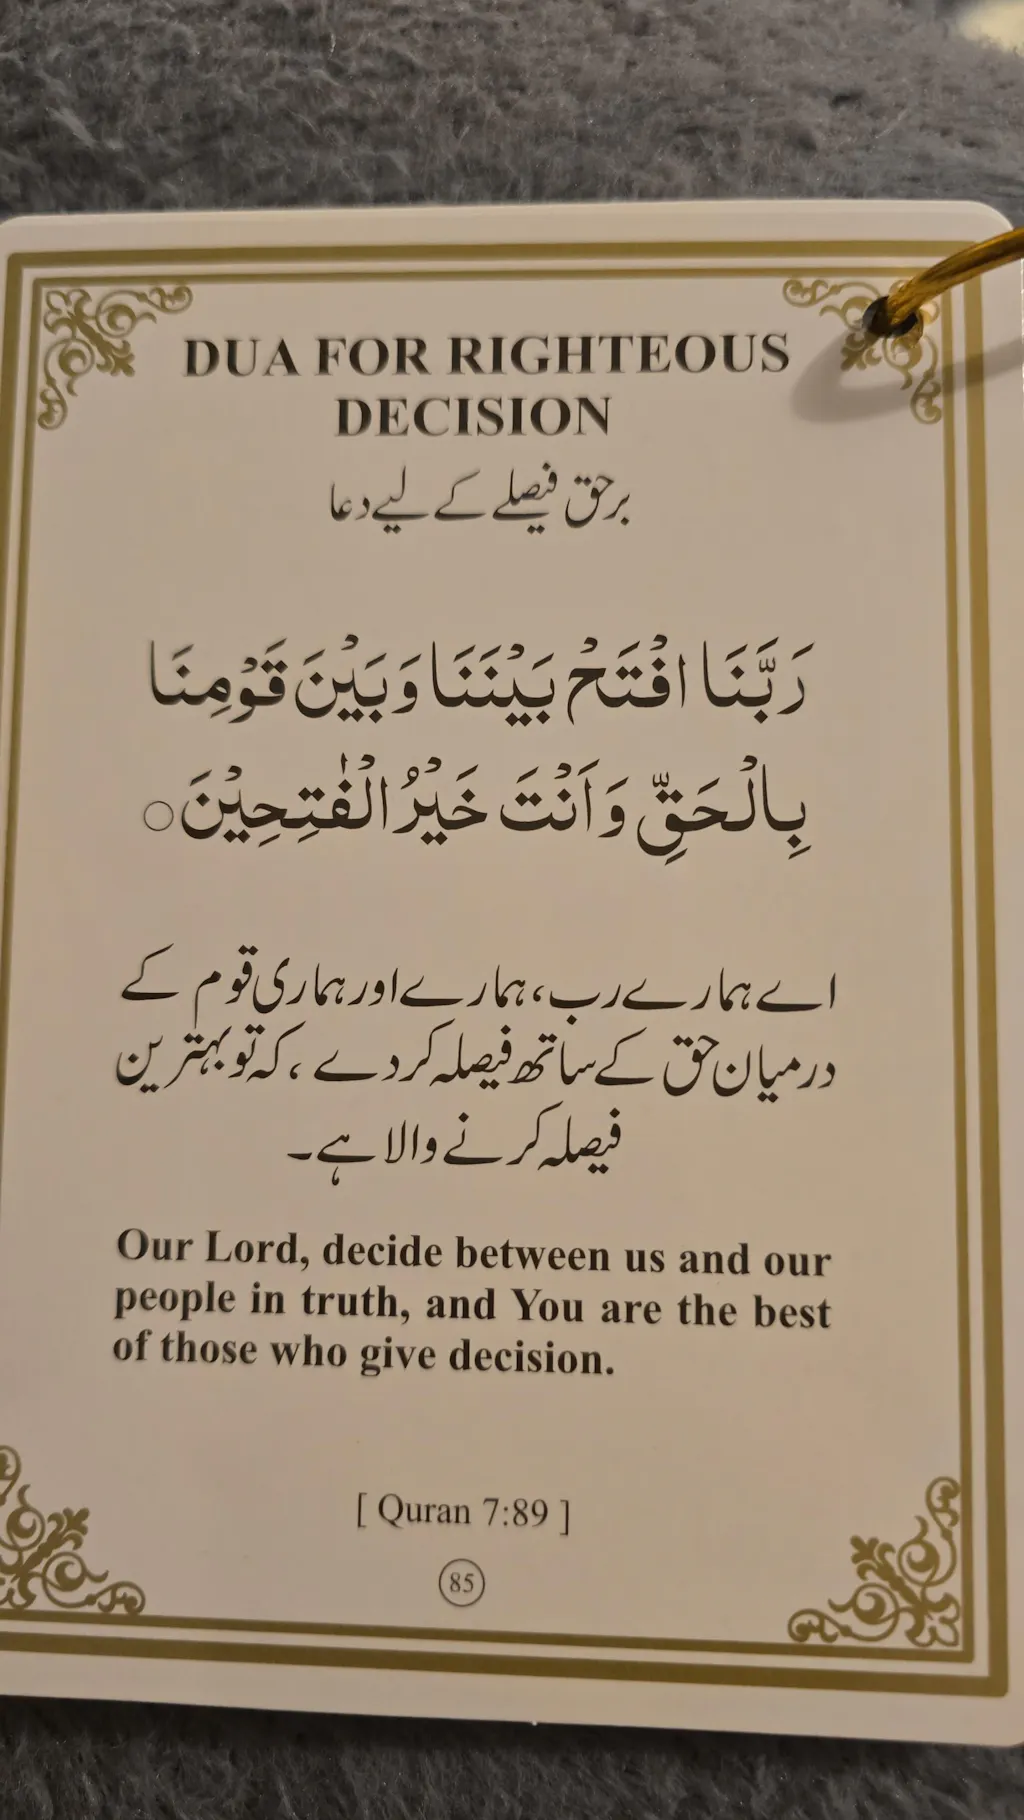 DUA FOR RIGHTEOUS
DECISION
برحق فیصلے کے لیے دعا
رَبَّنَا افْتَحْ بَيْنَنَا وَبَيْنَ قَوْمِنَا
بِالْحَقِّ وَاَنْتَ خَيْرُ الْفٰتِحِيْنَ○
اے ہمارے رب، ہمارے اور ہماری قوم کے
درمیان حق کے ساتھ فیصلہ کر دے، کہ تو بہترین
فیصلہ کرنے والا ہے۔
Our Lord, decide between us and our
people in truth, and You are the best
of those who give decision.
[ Quran 7:89 ]
85